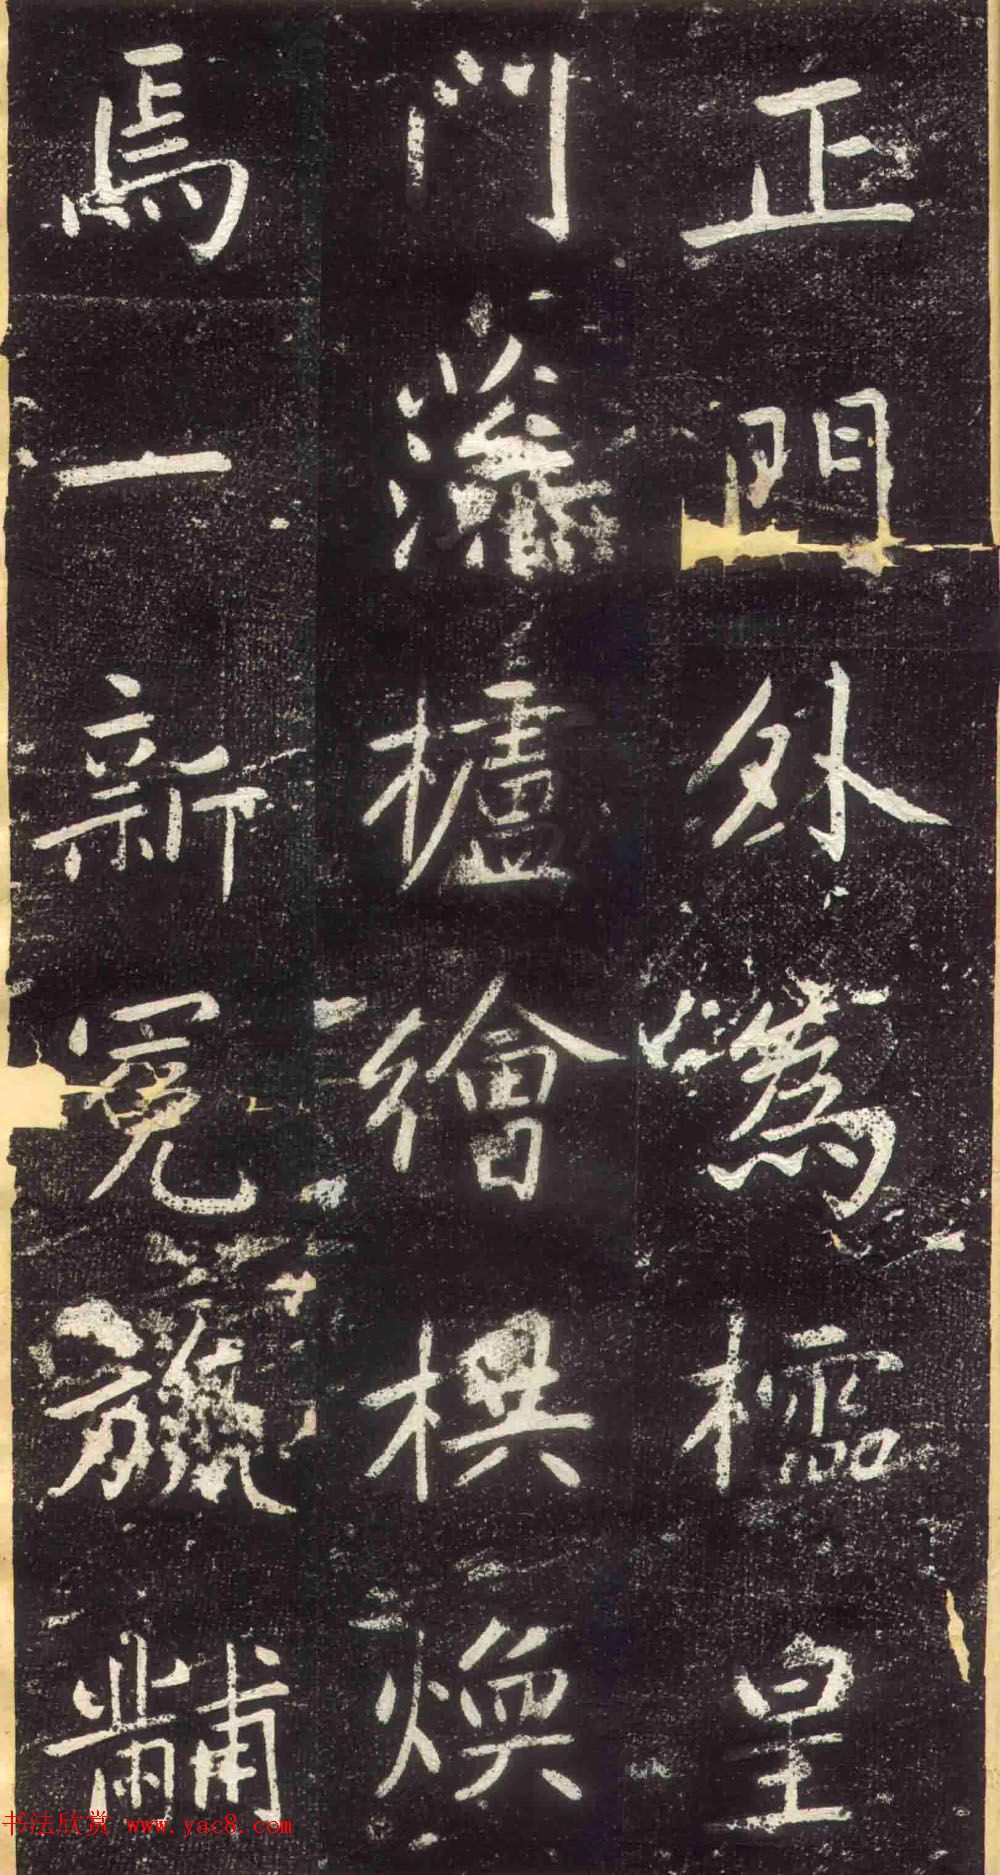 正門外爲櫺星
門藻櫨繪栱煥
焉一新冕旒黼
书法欣赏 www.yac8.com